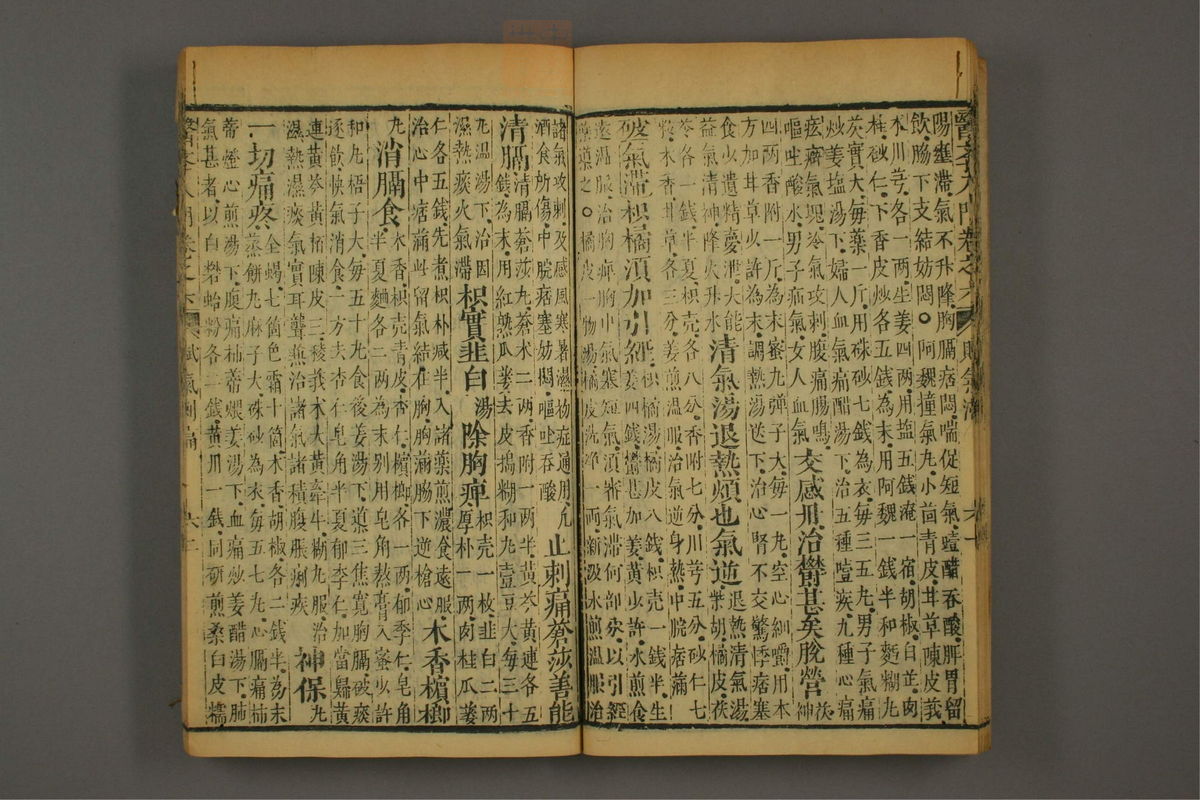 陽壅滯氣不升降胸膈痞悶喘促短氣噫醋吞酸脾胃留
飲脇下支結妨悶○阿魏撞氣丸小茴青皮甘草陳皮莪
朮川芎各一兩生姜四兩用塩五錢淹一宿胡椒白芷肉
桂砂仁下香皮炒各五錢為末用阿魏一錢半和麪糊丸
芡實大每藥一斤用硃砂七錢為衣每三五丸男子氣痛
炒姜塩湯下婦人血氣痛醋湯下治五種噎疾九種心痛
痃癖氣塊冷氣攻刺腹痛腸鳴
嘔吐酸水男子疝氣女人血氣交感丹治鬱甚矣脫營茯神
四兩香附一斤為末蜜丸彈子大每一丸空心細嚼用本
方加甘草少許為末調熱湯送下治心腎不交驚悸痞塞
食少遺精夢泄大能
益氣清神降火升水清氣湯退熱煩也氣逆退熱清氣湯柴胡橘皮茯
苓各一錢半夏枳殼各八分香附七分川芎五分砂仁七
粒木香甘草各三分姜煎溫服治氣逆身熱中脘痞滿
破氣滯枳橘須加引經枳橘湯橘皮八錢枳殼一錢半生姜四錢鬱甚加姜黃少許水煎食
遠溫服治胸痺胸中氣塞短氣須審氣滯何部分以引經
藥導之○橘皮一物湯橘皮洗淨一兩新汲水煎溫服治
諸氣攻刺及感風寒暑濕初症通用凡
酒食所傷中脘痞塞妨悶嘔吐吞酸止刺痛蒼莎善能
清膈清膈蒼莎丸蒼朮二兩香附一兩半黃芩黃連各五錢為末用紅熟瓜蔞去皮搗糊和丸菉豆大每三十
丸溫湯下治因
濕熱痰火氣滯枳實韮白湯除胸痺枳殼一枚韮白二兩厚朴一兩肉桂瓜蔞
仁各五錢先煮枳朴減半入諸藥煎濃食遠服
治心中痞滿留氣結在胸胸滿脇下逆槍心木香檳榔
丸消膈食木香枳殼青皮杏仁檳榔各一兩郁李仁皂角半夏麵各二兩為末別用皂角熬膏入蜜少許
和丸梧子大每五十丸食後姜湯下導三焦寬胸膈破痰
逐飲快氣消食一方去杏仁皂角半夏郁李仁加當歸黃
連黃芩黃栢陳皮三稜莪朮大黃牽牛糊丸服治
濕熱濕痰氣實耳聾兼治諸氣諸積腹脹痢疾神保丸
一切痛疼全蝎七箇巴霜十箇木香胡椒各二錢半為末蒸餅丸麻子大硃砂為衣每五七丸心膈痛柿
蒂燈心煎湯下腹痛柿蒂煨姜湯下血痛炒姜醋湯下肺
氣甚者以白礬蛤粉各二錢黃丹一錢同研煎桑白皮糯